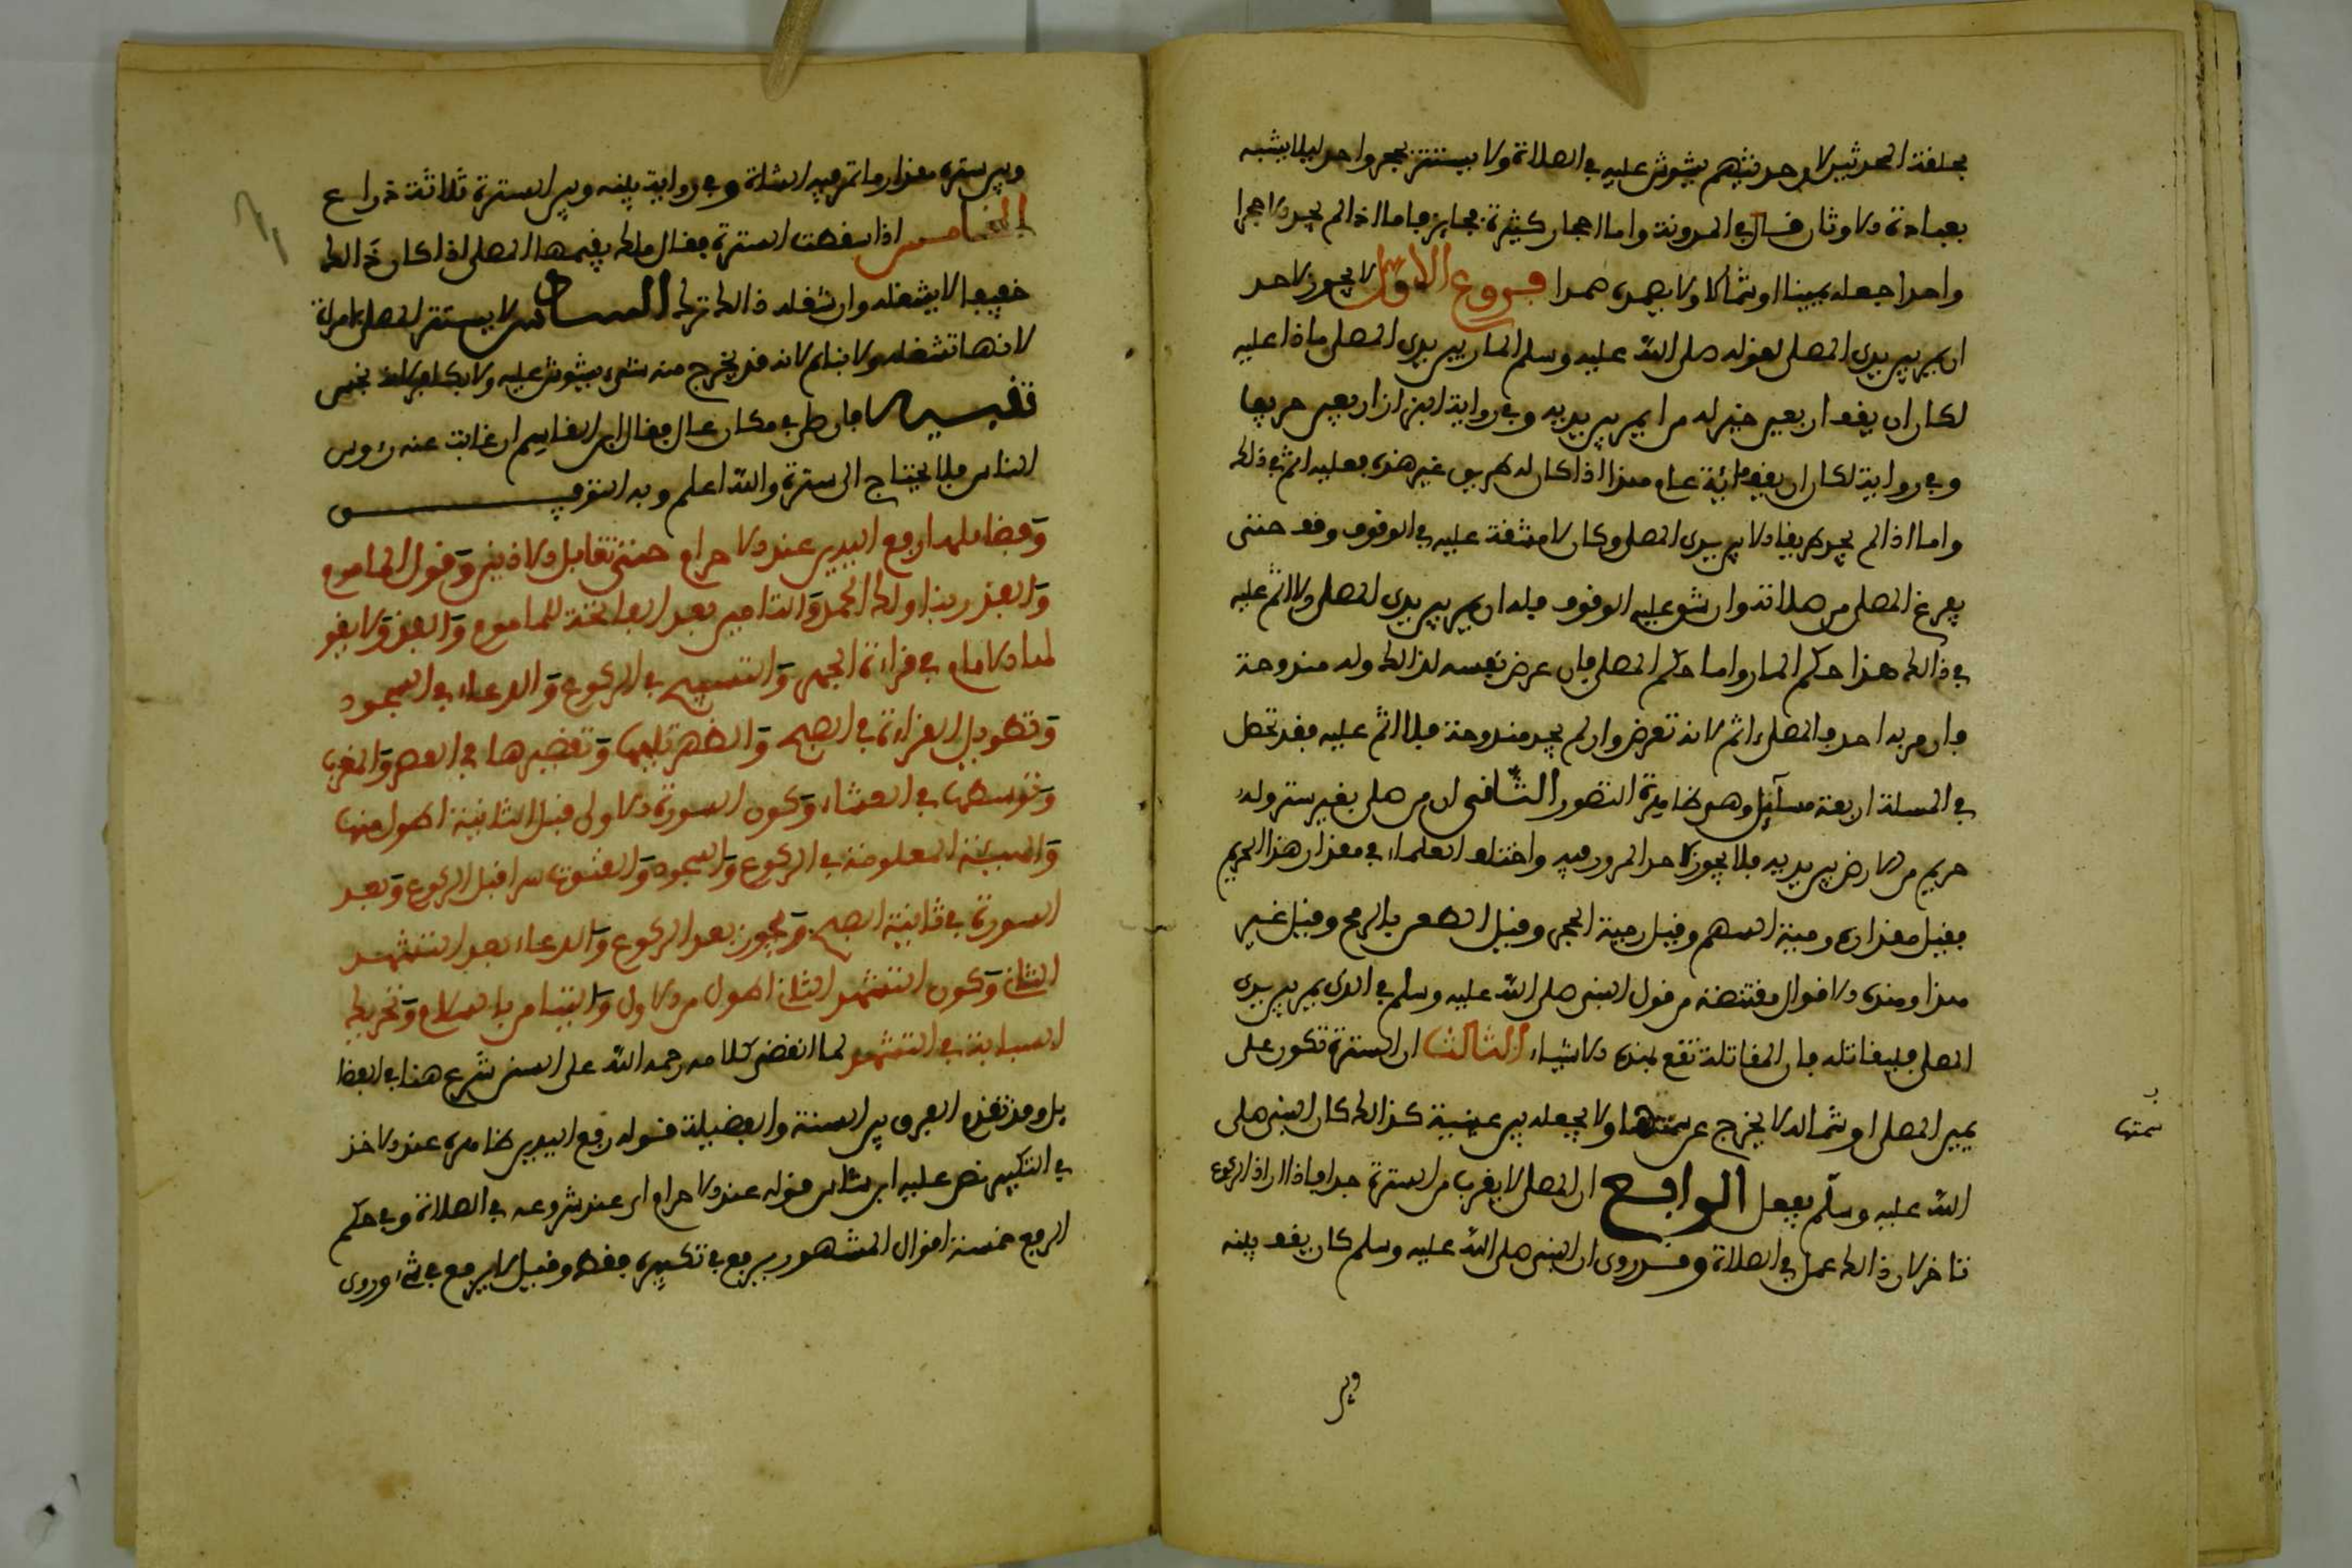 بحلقة المحدثين لان حديثهم يشوش عليه في الصلاة ولا يستتر بحجر واحد ليلا يشبه
بعبادة الاوثان قال في المدونة واما احجار كثيرة فجايز فاما اذا لم يجد الا حجرا
واحدا جعله يمينا او شمالا ولا يصمده صمدا فروع الاول لا يجوز لاحد
ان يمر بين يدي المصلي لقوله صلى الله عليه وسلم لو يعلم المار بين يدي المصلي ماذا عليه
لكان ان يقف اربعين خير له من ان يمر بين يديه وفي رواية البزار اربعين خريفا
وفي رواية لكان ان يقف مائة عام هذا اذا كان له طريق غير هذه فعليه اثم في ذلك
واما اذا لم يجد طريقا الا بين يدي المصلي وكان لا مشقة عليه في الوقوف وقف حتى
يفرغ المصلي من صلاته وان شق عليه الوقوف فله ان يمر بين يدي المصلي ولا اثم عليه
في ذالك هذا حكم المار واما حكم المصلي فان عرض نفسه لذالك وله مندوحة
فان مر به احد فالمصلي اثم لانه تعرض وان لم يجد مندوحة فلا اثم عليه فقد تحصل
في المسلة اربعة مسآئل وهو ظاهرة التصور الثاني ان من صلى بغير ستر وله
حريم من الارض بين يديه فلا يجوز لاحد المرور فيه واختلف العلماء في مقدار هذا الحريم
فقيل مقداره رمية السهم وقيل رمية الحجر وقيل الطعن بالرمح وقيل غير
هذا وهذه الاقوال مقتضة من قول النبي صلى الله عليه وسلم في الذي يمر بين يدي
المصلي فليقاتله فان المقاتلة تقع بهذه الاشياء الثالث ان السترة تكون على
يمين المصلي او شماله لا يخرج عن سمتها ولا يجعله بين عينيه كذالك كان النبي صلى
سمتها
الله عليه وسلم يفعل الرابع ان المصلي لا يقرب من السترة جدا فاذا اراد الركوع
تاخر لان ذالك عمل في الصلاة وقد روى ان النبي صلى الله عليه وسلم كان يقف بينه
وبين
وبين سترته مقدار ما تمر فيه الشاة وفي رواية بينه وبين السترة ثلاثة ذراع
الخامس اذا سقطت السترة فقال ملك يقيمها المصلي اذا كان ذالك
خفيفا لا يشغله وان شغله ذالك تركه السادس لا يستتر المصلي بامراة
لانها تشغله ولا بنايم لانه قد يخرج منه شيء يشوش عليه ولا بكافر لانه نجس
تنبيه فان صلى في مكان عال فقال ابن القاسم ان غابت عنه رءوس
الناس فلا يحتاج الى سترة والله اعلم وبه التوفيق
وفضايلها رفع اليدين عند الاحرام حتى تقابل الاذنين وقول الماموم
والفذ ربنا ولك الحمد والتامين بعد الفاتحة للماموم والفذ ولا يقولها
الامام في قراءة الجهر والتسبيح في الركوع والدعاء في السجود
وتطويل القراءة في الصبح والظهر تليها وتقصيرها في العصر والمغرب
وتوسطها في العشاء وتكون السورة الاولى قبل الثانية اطول منها
والهيئة المعلومة في الركوع والسجود والقنوت سرا قبل الركوع وبعد
السورة في ثانية الصبح ويجوز بعد الركوع والدعاء بعد التشهد
الثاني وتكون التشهد الثاني اطول من الاول والتيامن بالسلام وتحريك
السبابة في التشهد لما انقضى كلامه رحمه الله على السنن شرع هنا في الفضا
يل وقد تقدم الفرق بين السنة والفضيلة قوله رفع اليدين ظاهره عند الاخذ
في التكبير نص عليه ابن شاس قوله عند الاحرام اي عند شروعه في الصلاة وفي حكم
الرفع خمسة اقوال المشهور يرفع في تكبيرة فقط وقيل لا يرفع في شيء وروى